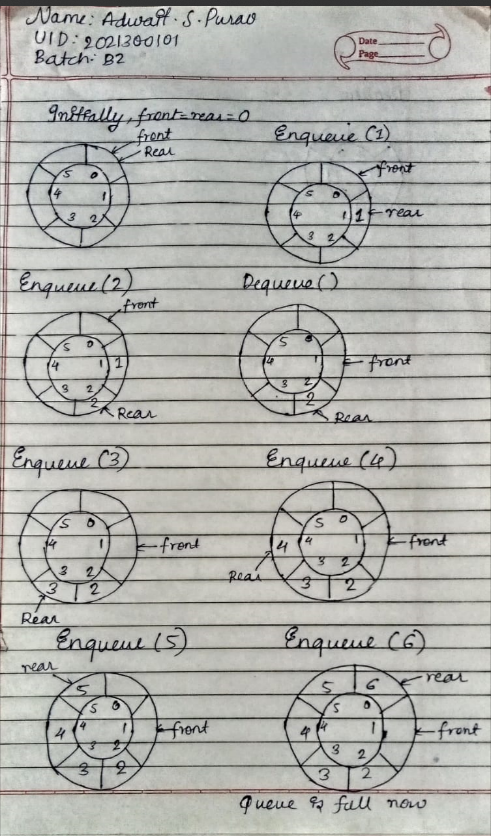 Name: Adwait . S. Purav
UID: 2021300101
Batch: B2
Date
Page
Initially, front=rear=0
front
Rear
5 0
4 1
3 2
Enqueue (1)
front
5 0
4 1 1 rear
3 2
Enqueue (2)
front
5 0
4 1 1
3 2
2
Rear
Dequeue ()
5 0
4 1 front
3 2
2
Rear
Enqueue (3)
5 0
4 1 front
3 2
3 2
Rear
Enqueue (4)
5 0
4 4 1 front
Rear
3 2
3 2
Enqueue (5)
rear
5
5 0
4 4 1 front
3 2
3 2
Enqueue (6)
5 6 rear
5 0
4 4 1 front
3 2
3 2
Queue is full now